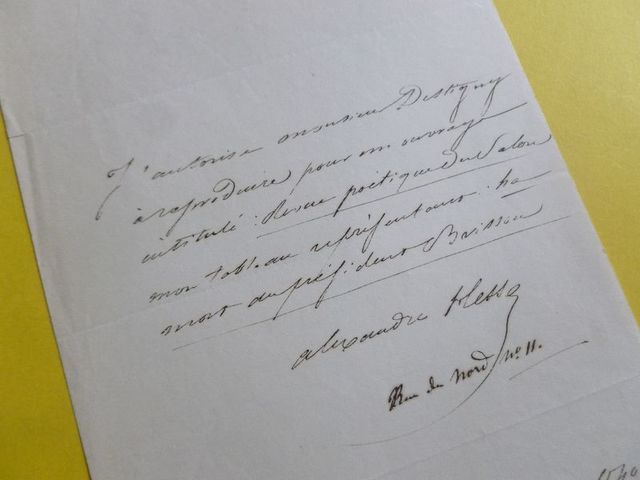 J'autorise monsieur Destigny
à reproduire pour un ouvrage
intitulé: Revue poëtique du Salon
mon tableau représentant: La
mort du président Brisson
alexandre hesse
Rue du Nord nº 11.